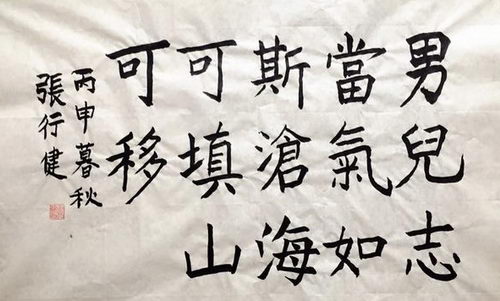 男兒志
當氣如
斯滄海
可填山
可移
丙申暮秋
張行健